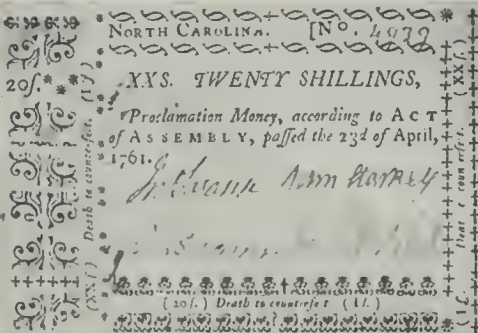 NORTH CAROLINA. [No. 4933
20ſ.
XXS. TWENTY SHILLINGS,
Proclamation Money, according to ACT
of ASSEMBLY, paſſed the 23d of April,
1761.
Jn. Swann Sam Starkey
(20ſ.) Death to counterfeit (1ſ.)
Death to counterfeit. (1ſ)
(XXſ)
(XXſ.)
Death to counterfeit.
(1ſ.